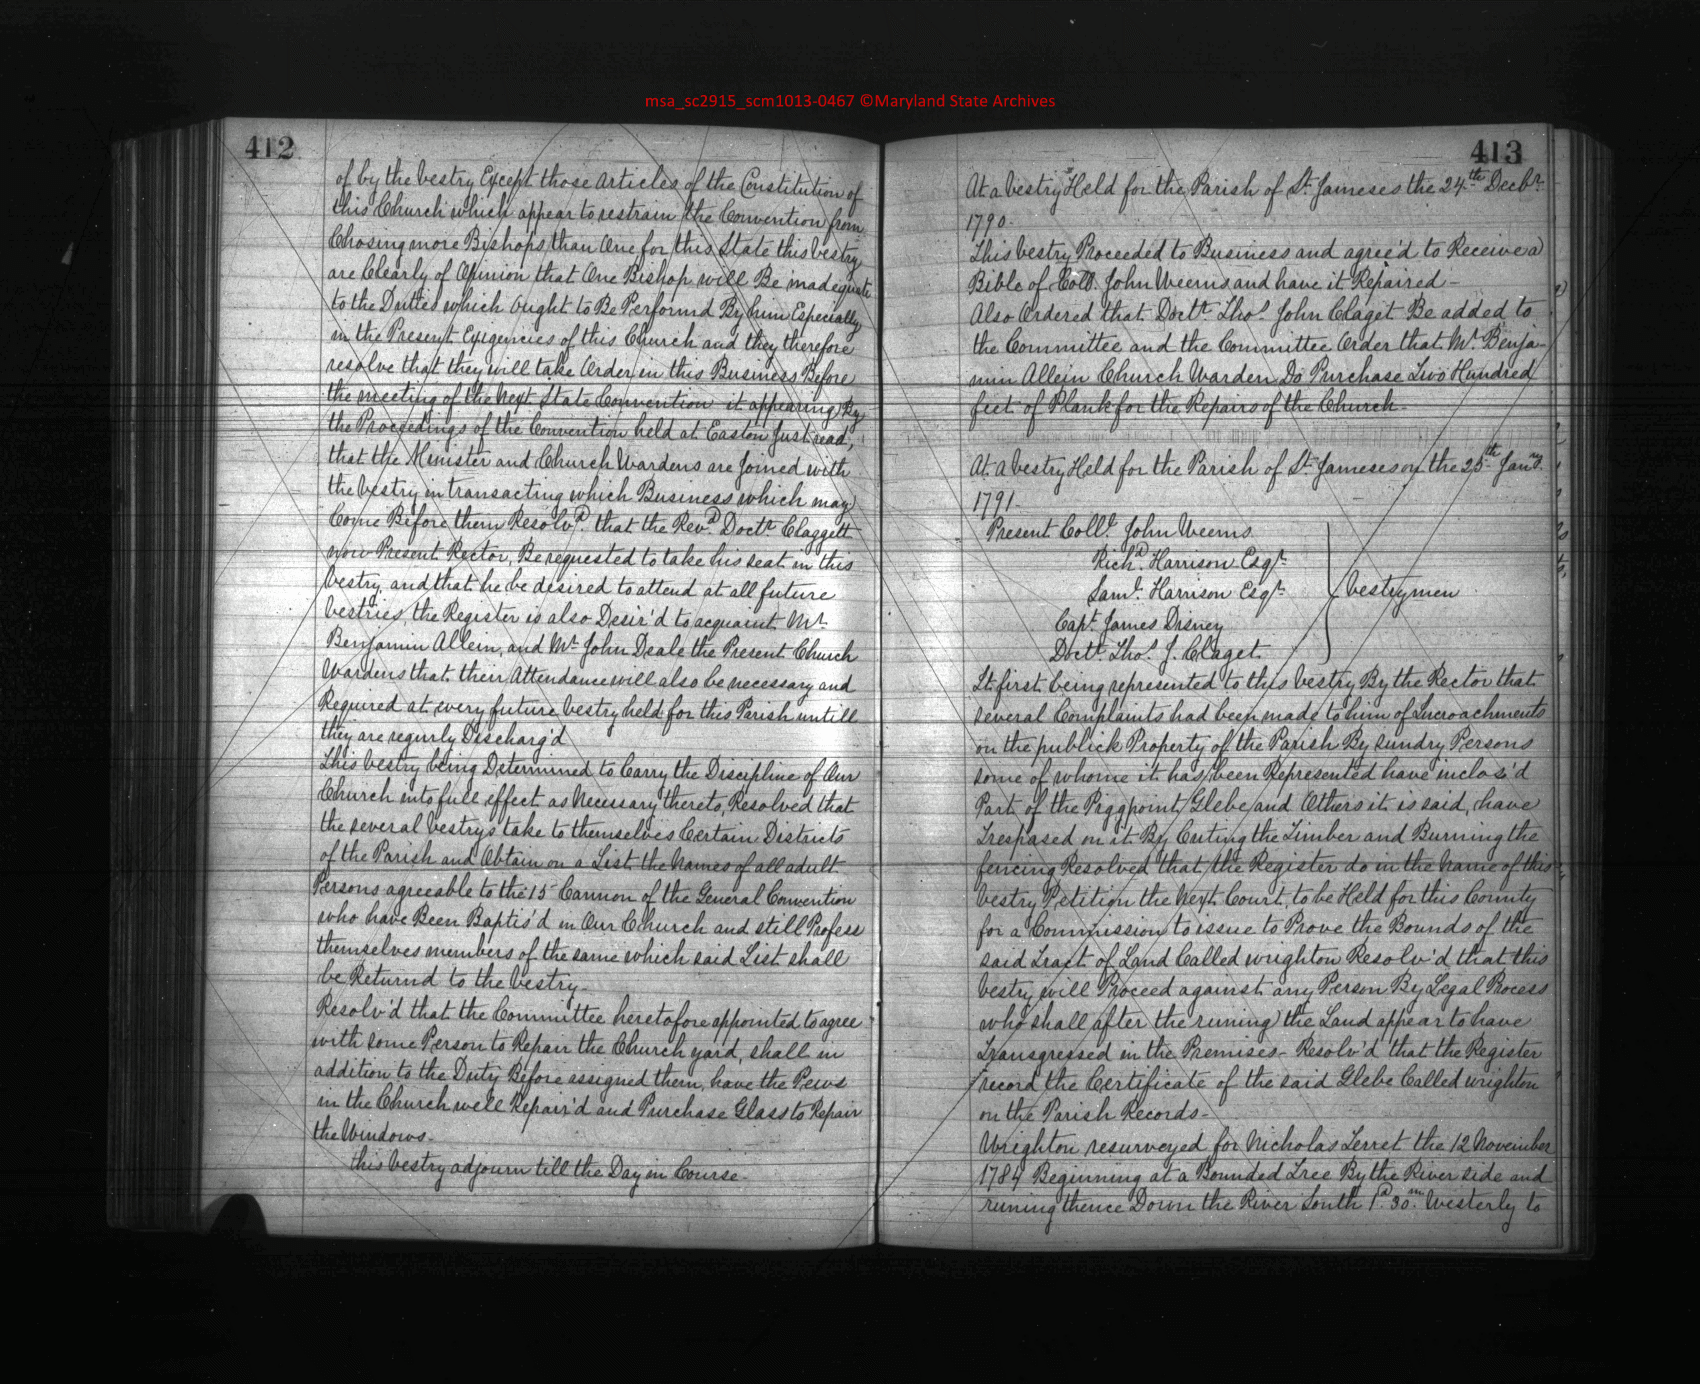 msa_sc2915_scm1013-0467 ©Maryland State Archives
412
of by the Vestry Except those Articles of the Constitution of
this Church which appear to restrain the Convention from
Chosing more Bishops than One for this State this Vestry
are Clearly of Opinion that One Bishop will Be inadequate
to the Duties which Ought to Be Performd By him Especially
in the Present Exigencies of this Church and they therefore
resolve that they will take Order in this Business Before
the meeting of the Next State Convention it appearing By
the Proceedings of the Convention held at Easton Just read,
that the Minister and Church Wardens are Joined with
the Vestry in transacting which Business which may
Come Before them Resolvd. that the Revd. Doctr. Claggett
now Present Rector, Be requested to take his seat in this
Vestry, and that he be desired to attend at all future
Vestries, the Register is also Desir'd to acquaint Mr.
Benjamin Allein, and Mr. John Deale the Present Church
Wardens that their Attendance will also be necessary and
Required at every future Vestry held for this Parish untill
they are regurly Discharg'd
This Vestry being Determined to Carry the Discipline of Our
Church into full effect as Necessary thereto, Resolved that
the several Vestrys take to themselves Certain Districts
of the Parish and Obtain on a List the Names of all adult
Persons agreeable to the 15 Cannon of the General Convention
who have Been Baptis'd in Our Church and still Profess
themselves members of the same which said List shall
be Returnd to the Vestry-
Resolv'd that the Committee heretofore appointed to agree
with some Person to Repair the Church yard, shall in
addition to the Duty Before assigned them, have the Pews
in the Church well Repair'd and Purchase Glass to Repair
the Windows-
this Vestry adjourn till the Day in Course-
413
At a Vestry Held for the Parish of St. Jameses the 24th Decbr.
1790-
This Vestry Proceeded to Business and agree'd to Receive a
Bible of Coll. John Weems and have it Repaired-
Also Ordered that Doctr. Thos. John Claget Be added to
the Committee and the Committee Order that Mr. Benja-
min Allein Church Warden Do Purchase Two Hundred
feet of Plank for the Repairs of the Church-
At a Vestry Held for the Parish of St. Jameses on the 25th Jany.
1791-
Present Coll. John Weems
Richd. Harrison Esqr.
Saml. Harrison Esqr.
Vestrymen
Capt. James Disney
Doctr. Thos. J. Claget
It first being represented to this Vestry By the Rector that
several Complaints had been made to him of Incroachments
on the publick Property of the Parish By sundry Persons
some of whome it has been Represented have inclos'd
Part of the Piggpoint Glebe and Others it is said, have
Trespased on it By Cutting the Timber and Burning the
fencing Resolved that the Register do in the Name of this
Vestry Petition the Next Court, to be Held for this County
for a Commission to issue to Prove the Bounds of the
said Tract of Land Called Wrighton Resolv'd that this
Vestry will Proceed against any Person By Legal Process
who shall after the runing the Land appear to have
Transgressed in the Premises- Resolv'd that the Register
record the Certificate of the said Glebe Called Wrighton
on the Parish Records-
Wrighton resurveyed for Nicholas Terret the 12 November
1784 Beginning at a Bounded Tree By the River side and
runing thence Down the River South 1d. 30m. Westerly to